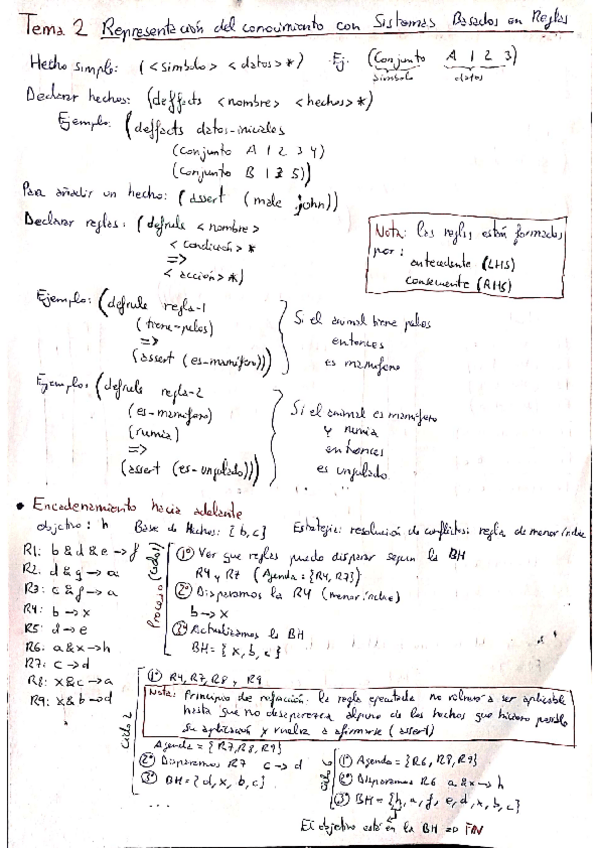 Tema 2 Representación del conocimiento con Sistemas Basados en Reglas
Hecho simple: (<simbolo> <datos>*) Ej. (Conjunto A 1 2 3)
simbolo datos
Declarar hechos: (deffacts <nombre> <hechos>*)
Ejemplo: (deffacts datos-iniciales
(conjunto A 1 2 3 4)
(conjunto B 1 3 5))
Para añadir un hecho: (assert (male john))
Declarar reglas: (defrule <nombre>
<condición>*
=>
<acción>*)
Nota: las reglas están formadas
por:
antecedente (LHS)
consecuente (RHS)
Ejemplo: (defrule regla-1
(tiene-pelos)
=>
(assert (es-mamifero)))
Si el animal tiene pelos
entonces
es mamifero
Ejemplo: (defrule regla-2
(es-mamifero)
(rumia)
=>
(assert (es-ungulado)))
Si el animal es mamifero
y rumia
entonces
es ungulado
• Encadenamiento hacia adelante
objetivo: h Base de Hechos: {b,c} Estrategia: resolución de conflictos: regla de menor índice
R1: b & d & e -> f
R2: d & g -> a
R3: c & f -> a
R4: b -> x
R5: d -> e
R6: a & x -> h
R7: c -> d
R8: x & c -> a
R9: x & b -> d
Proceso (ciclo 1)
1º Ver que reglas puedo disparar segun la BH
R4 y R7 (Agenda: {R4, R7})
2º Disparamos la R4 (menor índice)
b -> x
3º Actualizamos la BH
BH = {x, b, c}
Ciclo 2
1º R4, R7, R8 y R9
Nota: Principio de refracción: la regla ejecutada no vuelve a ser aplicable
hasta que no desaparezca alguno de los hechos que hicieron posible
su aplicación y vuelva a afirmarse (assert)
Agenda = {R7, R8, R9}
2º Disparamos R7 c -> d
3º BH = {d, x, b, c}
...
1º Agenda = {R6, R8, R9}
2º Disparamos R6 a & x -> h
3º BH = {h, a, f, e, d, x, b, c}
El objetivo está en la BH => FIN